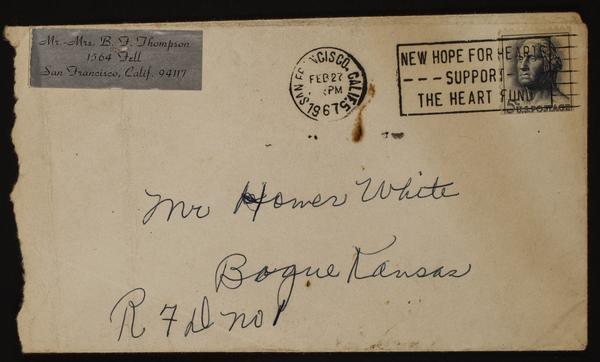 Mr.-Mrs. B. F. Thompson
1564 Fell
San Francisco, Calif. 94117
SAN FRANCISCO, CALIF.
FEB 27
PM
1967
NEW HOPE FOR HEARTS
--- SUPPORT -
THE HEART FUND
5c U.S. POSTAGE
Mr Homer White
Bogue Kansas
R F D no 1